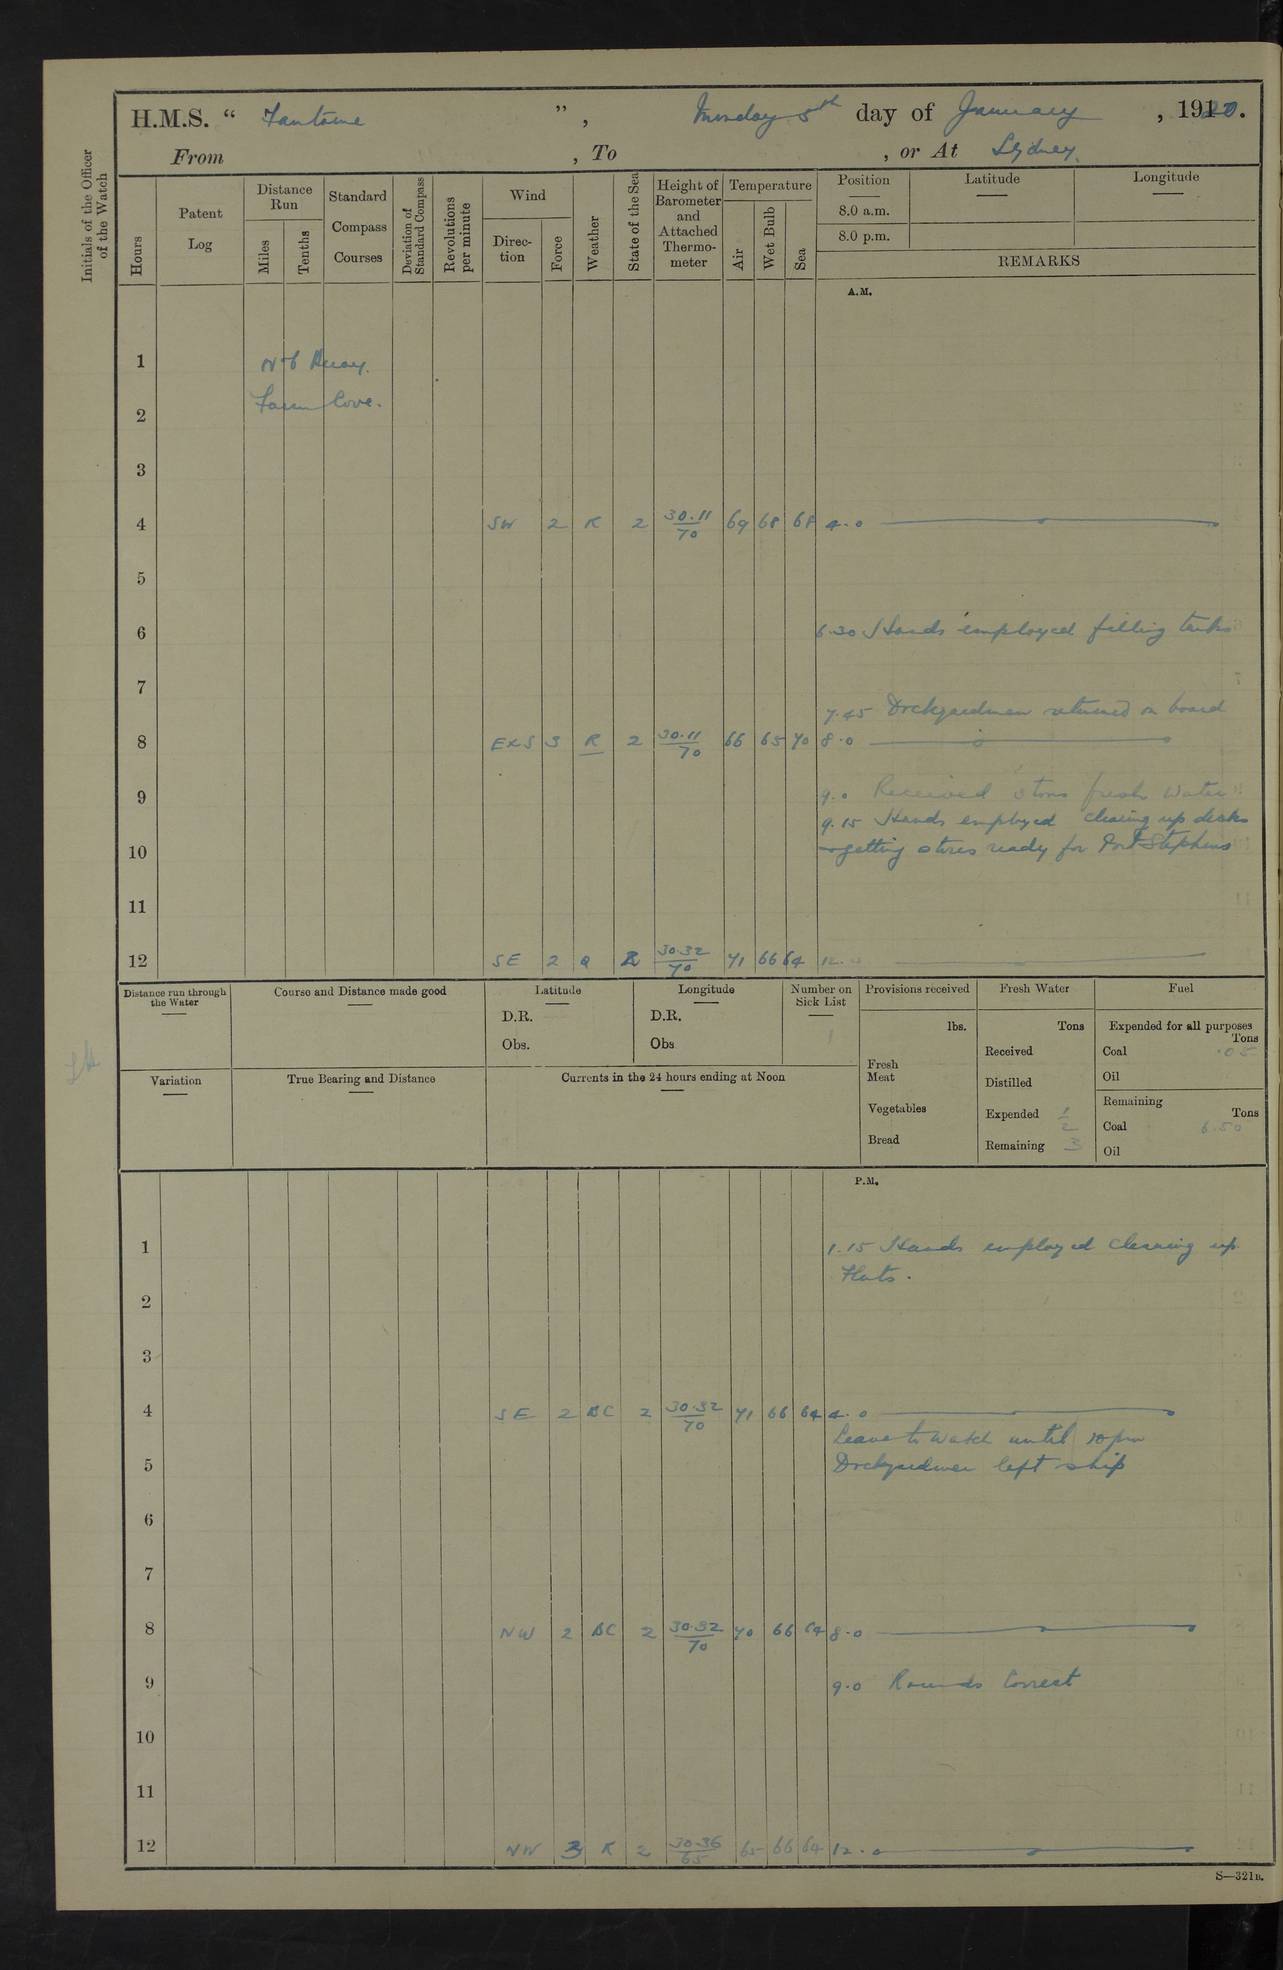 H.M.S. “ Fantome ”, Monday 5th day of January, 1920.
From , To , or At Sydney.
Initials of the Officer
of the Watch
Hours
Patent
Log
Distance
Run
Miles
Tenths
Standard
Compass
Courses
Deviation of
Standard Compass
Revolutions
per minute
Wind
Direc-
tion
Force
Weather
State of the Sea
Height of
Barometer
and
Attached
Thermo-
meter
Temperature
Air
Wet Bulb
Sea
Position
8.0 a.m.
8.0 p.m.
Latitude
Longitude
REMARKS
A.M.
1 Buoy.
2 Farm Cove.
3
4 SW 2 R 2 30.11/70 69 68 68 4.0
5
6 6.30 Hands employed filling tanks
7
7.45 Dockyardmen returned on board
8 ExS 3 R 2 30.11/70 66 65 70 8.0
9 9.0 Received 3 tons fresh water
9.15 Hands employed clearing up decks
10 getting stores ready for Port Stephens
11
12 SE 2 2 30.32/70 71 66 64 12.0
Distance run through
the Water
Course and Distance made good
Latitude
D.R.
Obs.
Longitude
D.R.
Obs
Number on
Sick List
1
Provisions received
lbs.
Fresh
Meat
Vegetables
Bread
Fresh Water
Tons
Received
Distilled
Expended 1/2
Remaining 3
Fuel
Expended for all purposes
Tons
Coal .05
Oil
Remaining
Tons
Coal 6.50
Oil
Variation
True Bearing and Distance
Currents in the 24 hours ending at Noon
P.M.
1 1.15 Hands employed cleaning up
Flats.
2
3
4 SE 2 BC 2 30.32/70 71 66 64 4.0
Leave to Watch until 10 pm
5 Dockyardmen left ship
6
7
8 NW 2 BC 2 30.32/70 70 66 64 8.0
9 9.0 Rounds Correct
10
11
12 NW 3 R 2 30.36/65 65 66 64 12.0
S—321B.